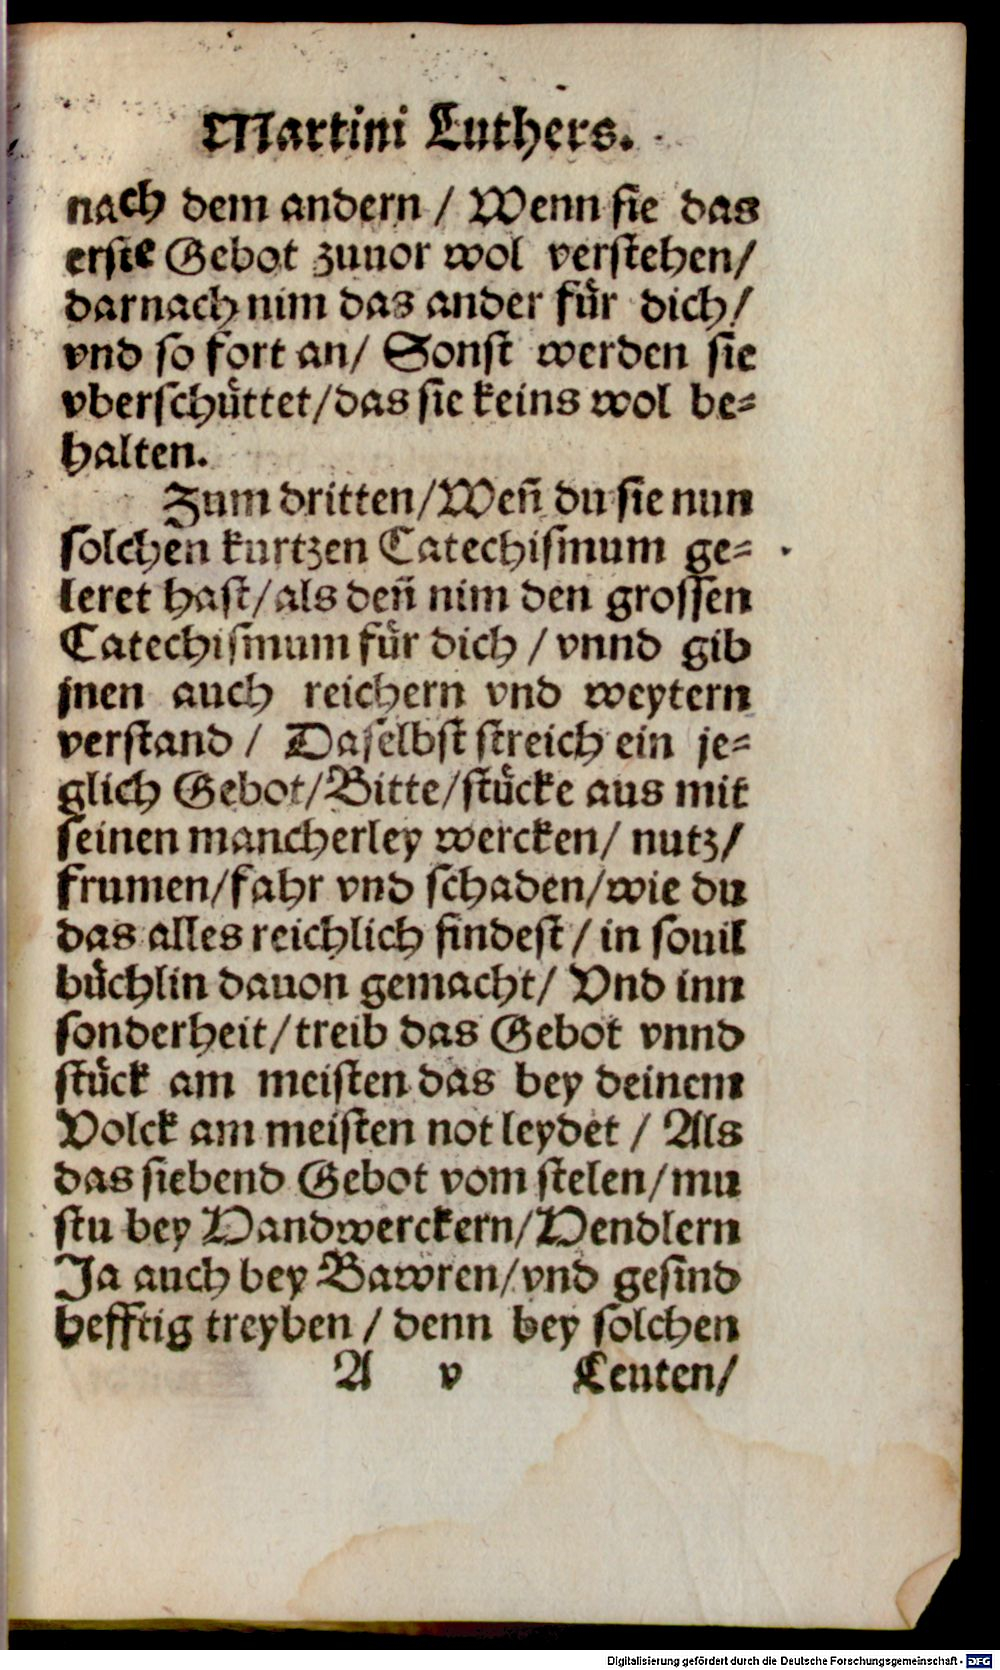 Martini Luthers.
nach dem andern / Wenn sie das
erste Gebot zuuor wol verstehen/
darnach nim das ander für dich/
vnd so fort an/ Sonst werden sie
vberschüttet/das sie keins wol be-
halten.
Zum dritten/Weñ du sie nun
solchen kurtzen Catechismum ge-
leret hast/als deñ nim den grossen
Catechismum für dich / vnnd gib
jnen auch reichern vnd weytern
verstand / Daselbst streich ein je-
glich Gebot/Bitte/stücke aus mit
seinen mancherley wercken/ nutz/
frumen/fahr vnd schaden/wie du
das alles reichlich findest / in souil
büchlin dauon gemacht/ Vnd inn
sonderheit/treib das Gebot vnnd
stück am meisten das bey deinem
Volck am meisten not leydet / Als
das siebend Gebot vom stelen/mu
stu bey Handwerckern/Hendlern
Ja auch bey Bawren/vnd gesind
hefftig treyben / denn bey solchen
A v Leuten/
Digitalisierung gefördert durch die Deutsche Forschungsgemeinschaft - DFG